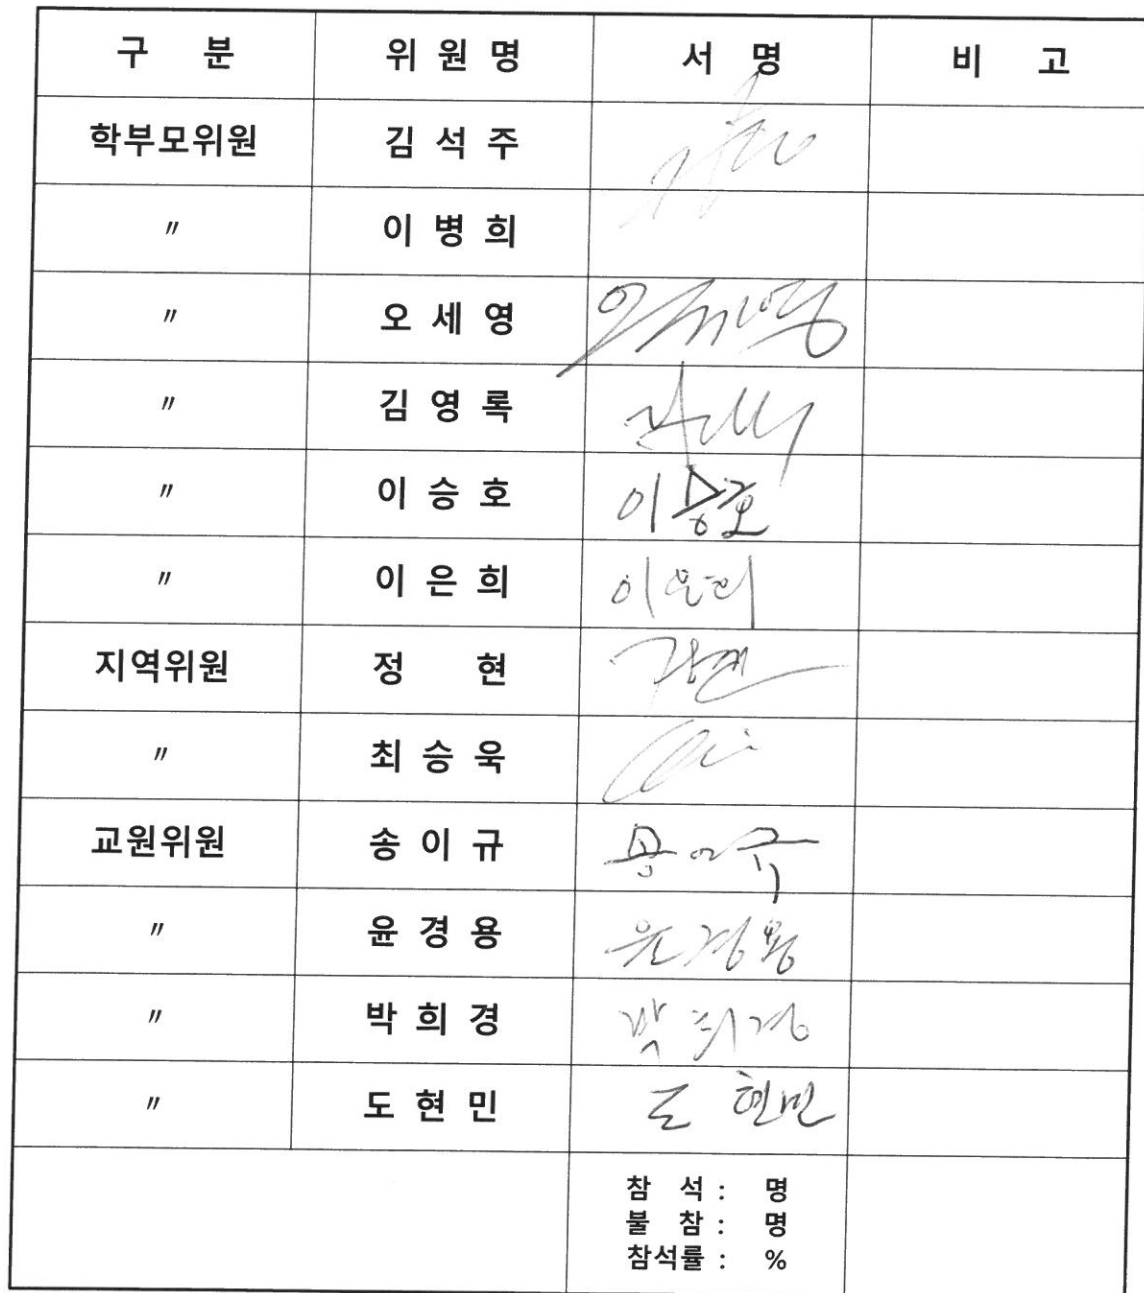 구 분 위 원 명 서 명 비 고
학부모위원 김 석 주
〃 이 병 희
〃 오 세 영 오세영
〃 김 영 록
〃 이 승 호 이승호
〃 이 은 희 이은희
지역위원 정 현
〃 최 승 욱
교원위원 송 이 규 송이규
〃 윤 경 용 윤경용
〃 박 희 경 박희경
〃 도 현 민 도현민
참 석 : 명
불 참 : 명
참석률 : %